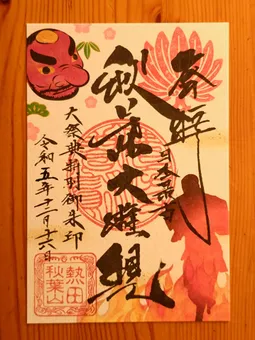 奉拝
日本最古
秋葉大権現
大祭典特別御朱印
令和五年十二月十六日
熱田
秋葉山